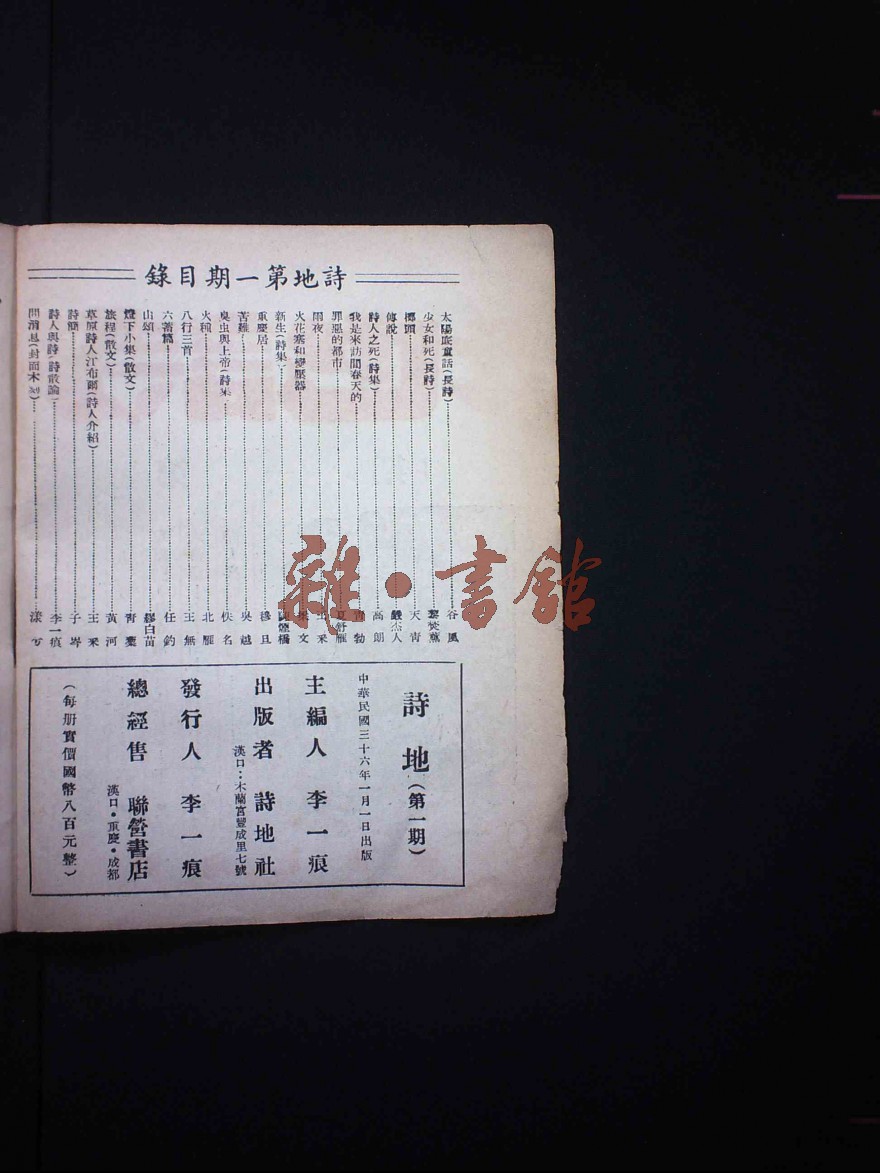 詩地第一期目錄
太陽底童話(長詩)……谷風
少女和死(長詩)
擲頭……天青
傳說……嚴杰人
詩人之死(詩集)……高朗
我是來訪問春天的
罪惡的都市……夏舒雁
雨夜……王采
火花塞和變壓器……文
新生(詩集)……煙橋
重慶居……穆旦
苦難……吳越
臭虫與上帝(詩集)……佚名
火種……北雁
八行三首……王無
六著篇……任鈞
山頌……廖白苗
燈下小集(散文)……青
旅程(散文)……黃河
草原詩人江布爾(詩人介紹)……王采
詩簡……子岑
詩人與詩(詩散論)……李一痕
問消息(封面木刻)……漾兮
詩地(第一期)
中華民國三十六年一月一日出版
主編人 李一痕
出版者 詩地社
漢口:木蘭宮豐成里七號
發行人 李一痕
總經售 聯營書店
漢口・重慶・成都
(每册實價國幣八百元整)
雜・書館